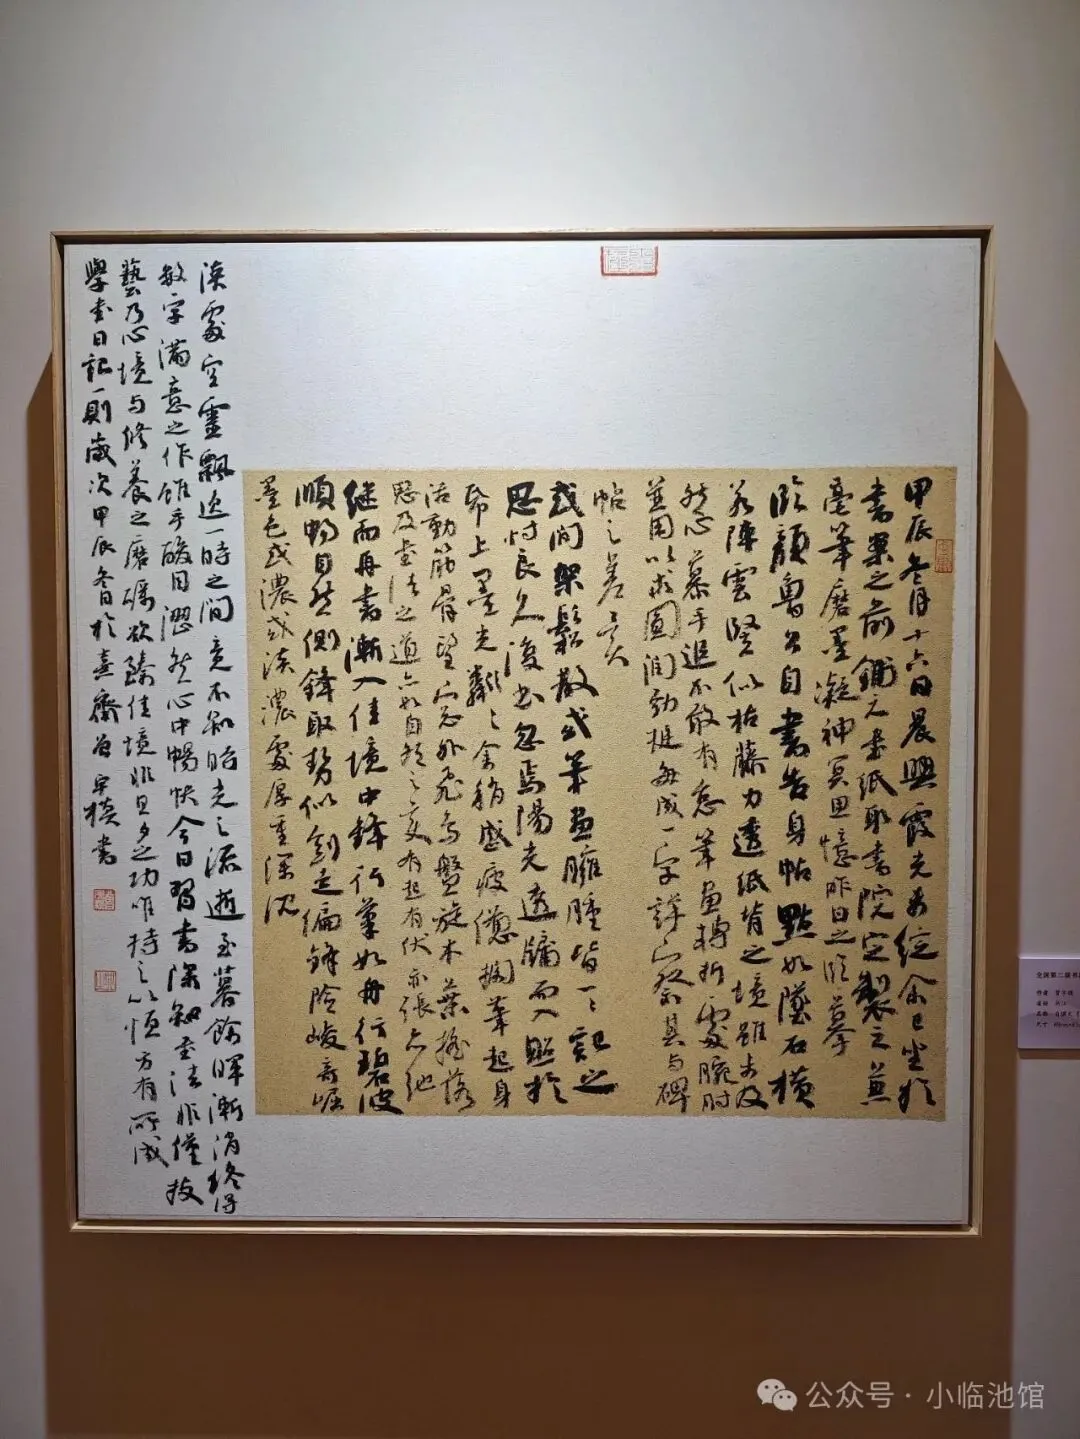 甲辰冬月十六日晨興霞光未綻余已坐於
書案之前鋪元書紙取書院定製之兼
毫筆磨墨凝神冥思憶昨日之臨摹
臨顏魯公自書告身帖點如墜石橫
若陣雲竪似枯藤力透紙背之境雖未及
然心慕手追不敢有怠筆畫轉折處腕肘
並用以求圓潤勁挺每成一字詳察其与碑
帖之差異
或間架鬆散或筆畫臃腫皆一一記之
思忖良久復書忽焉陽光透牖而入照於
帋上墨光粼粼余稍感疲憊擱筆起身
活動筋骨望窓外飛鳥盤旋木葉搖落
思及書法之道亦如自然之變有起有伏亦張亦弛
继而再書漸入佳境中鋒行筆如舟行碧波
順暢自然側鋒取勢似劍走偏鋒險峻奇崛
墨色或濃或淡濃處厚重深沉
淡處空靈飄逸一時之間竟不知時光之流逝至暮餘暉漸消終得
數字滿意之作雖手酸目澀然心中暢快今日習書深知書法非僅技
藝乃心境与修養之磨礪欲臻佳境非旦夕之功唯持之以恒方有所成
學書日記一則歲次甲辰冬日於熹齋
公众号·小临池馆